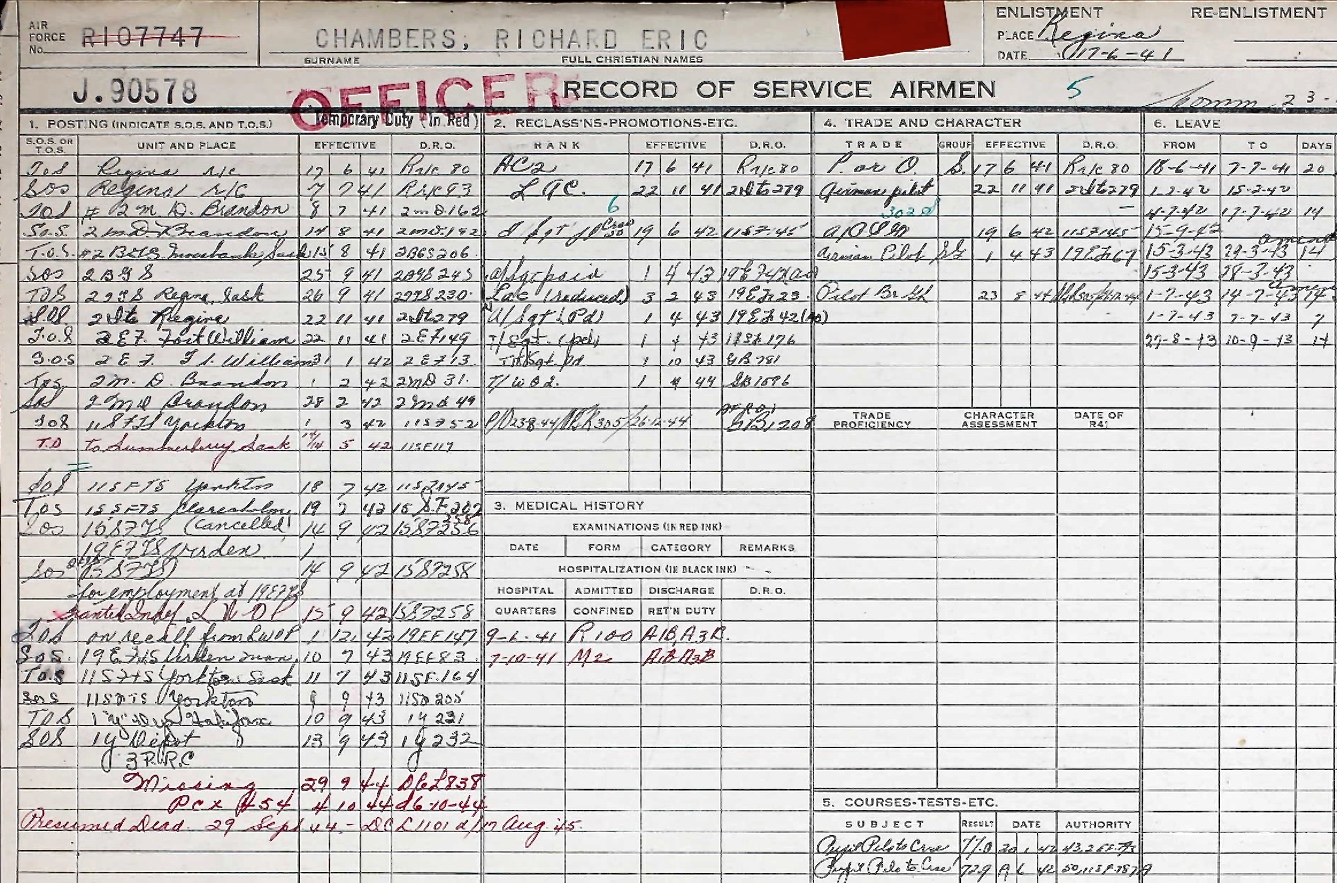 AIR FORCE No. R107747 CHAMBERS, RICHARD ERIC
SURNAME FULL CHRISTIAN NAMES
ENLISTMENT RE-ENLISTMENT
PLACE Regina
DATE 17-6-41
J.90578 OFFICER RECORD OF SERVICE AIRMEN 5
Comm 23-
1. POSTING (INDICATE S.O.S. AND T.O.S.) Temporary Duty (In Red)
S.O.S. OR T.O.S. UNIT AND PLACE EFFECTIVE D.R.O.
TOS Regina r/c 17 6 41 R r/c 80
SOS Regina r/c 7 7 41 R r/c 93
TOS # 2 M. D. Brandon 8 7 41 2 MD 162
S.O.S. 2 MD Brandon 14 8 41 2MD 192
T.O.S. #2 B+GS Sask 15 8 41 2BGS 206
SOS 2 BGS 25 9 41 2BGS 245
TOS 2 ITS Regina, Sask 26 9 41 2ITS 230
SOS 2 Its Regina 22 11 41 2Its 279
T.O.S 2 E.F. Fort William 22 11 41 2 EF 149
S.O.S 2 E F. Ft. William 31 1 42 2 EF 13
TOS 2 M. D. Brandon 1 2 42 2MD 31
SOS 2 MD Brandon 28 2 42 2 MD 49
TOS 11 SFTS Yorkton 1 3 42 11S 52
T.D to Summerberry Sask 5 42 11SF 117
SOS 11 SFTS Yorkton 18 7 42
TOS 15 SFTS Claresholm 19 7 42 15 S.F. 207
SOS 15 SFTS (Cancelled) 14 9 42 15SF 256
19 EFTS Virden
SOS 15 SFTS 14 9 42 15SF 258
for employment at 19 EFTS
Granted Indef. L W O P 15 9 42 15SF 258
TOS on recall from LWOP 1 12 42 19EF 147
S.O.S. 19 EFTS Virden Man. 10 7 43 19 EF 83
T.O.S 11 SFTS Yorkton Sask 11 7 43 11SF 164
SOS 11 SFTS Yorkton 9 9 43 11SD 205
TOS 1 "Y" Depot Halifax 10 9 43 1Y 231
SOS 1Y Depot 13 9 43 1Y 232
3 P.R.C
Missing 29 9 44 DCL 838
PCX #54 4 10 44 d 6-10-44
Presumed Dead. 29 Sept 44 - DCL 1101 d/17 Aug. 45.
2. RECLASS'NS-PROMOTIONS-ETC.
RANK EFFECTIVE D.R.O.
AC2 17 6 41 R r/c 80
LAC. 22 11 41 2Its 279
6
19 6 42 11SF 145
a/Sgt paid 1 4 43
Lac (reduced) 3 2 43 19EF 23
A/Sgt (Pd) 1 4 43 19EF 42
T/Sgt. (pd) 1 4 43 176
1 10 43 GB 781
T/WO2. 1 4 44 GB 1596
3. MEDICAL HISTORY
EXAMINATIONS (IN RED INK)
DATE FORM CATEGORY REMARKS
HOSPITALIZATION (IN BLACK INK)
HOSPITAL ADMITTED DISCHARGE D.R.O.
QUARTERS CONFINED RET'N DUTY
9-6-41 R 100 A1B, A3B.
7-10-41 M2 A1B A3B
4. TRADE AND CHARACTER
TRADE GROUP EFFECTIVE D.R.O.
P. or O. S. 17 6 41 R r/c 80
Airman pilot 22 11 41 2Its 279
19 6 42 11SF 145
Airman Pilot SG 1 4 43 19EF 67
Pilot Br 23 8 44
TRADE PROFICIENCY CHARACTER ASSESSMENT DATE OF R41
5. COURSES-TESTS-ETC.
SUBJECT RESULT DATE AUTHORITY
Pupil Pilots Crse 20 1 42
Pupil Pilots Crse
6. LEAVE
FROM TO DAYS
18-6-41 7-7-41 20
1-2-42 15-2-42
4-7-42 17-7-42 14
15-9-42
15-3-43 28-3-43 14
15-3-43 28-3-43
1-7-43 14-7-43 14
1-7-43 7-7-43 7
27-8-43 10-9-43 14